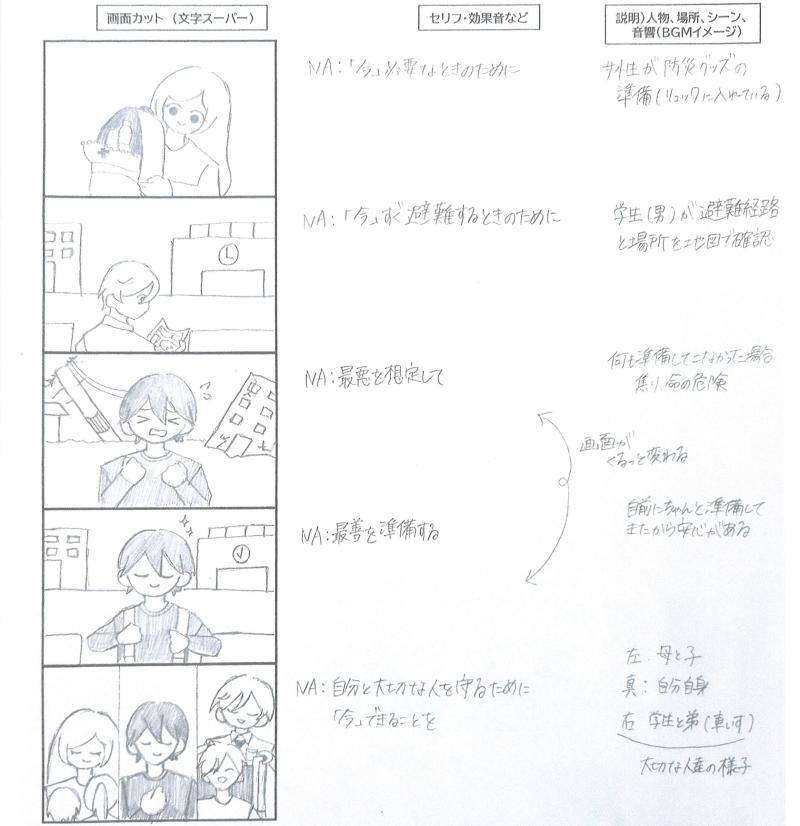 画面カット（文字スーパー）
セリフ・効果音など
説明）人物、場所、シーン、
音響（BGMイメージ）
NA：「今」必要なときのために
女性が防災グッズの
準備（リュックに入れている）
NA：「今」すぐ避難するときのために
学生（男）が避難経路
と場所を地図で確認
NA：最悪を想定して
何も準備してこなかった場合
焦り、命の危険
画面が
くるっと変わる
NA：最善を準備する
事前にちゃんと準備して
きたから安心がある
NA：自分と大切な人を守るために
「今」できることを
左．母と子
真：自分自身
右 学生と弟（車いす）
大切な人達の様子